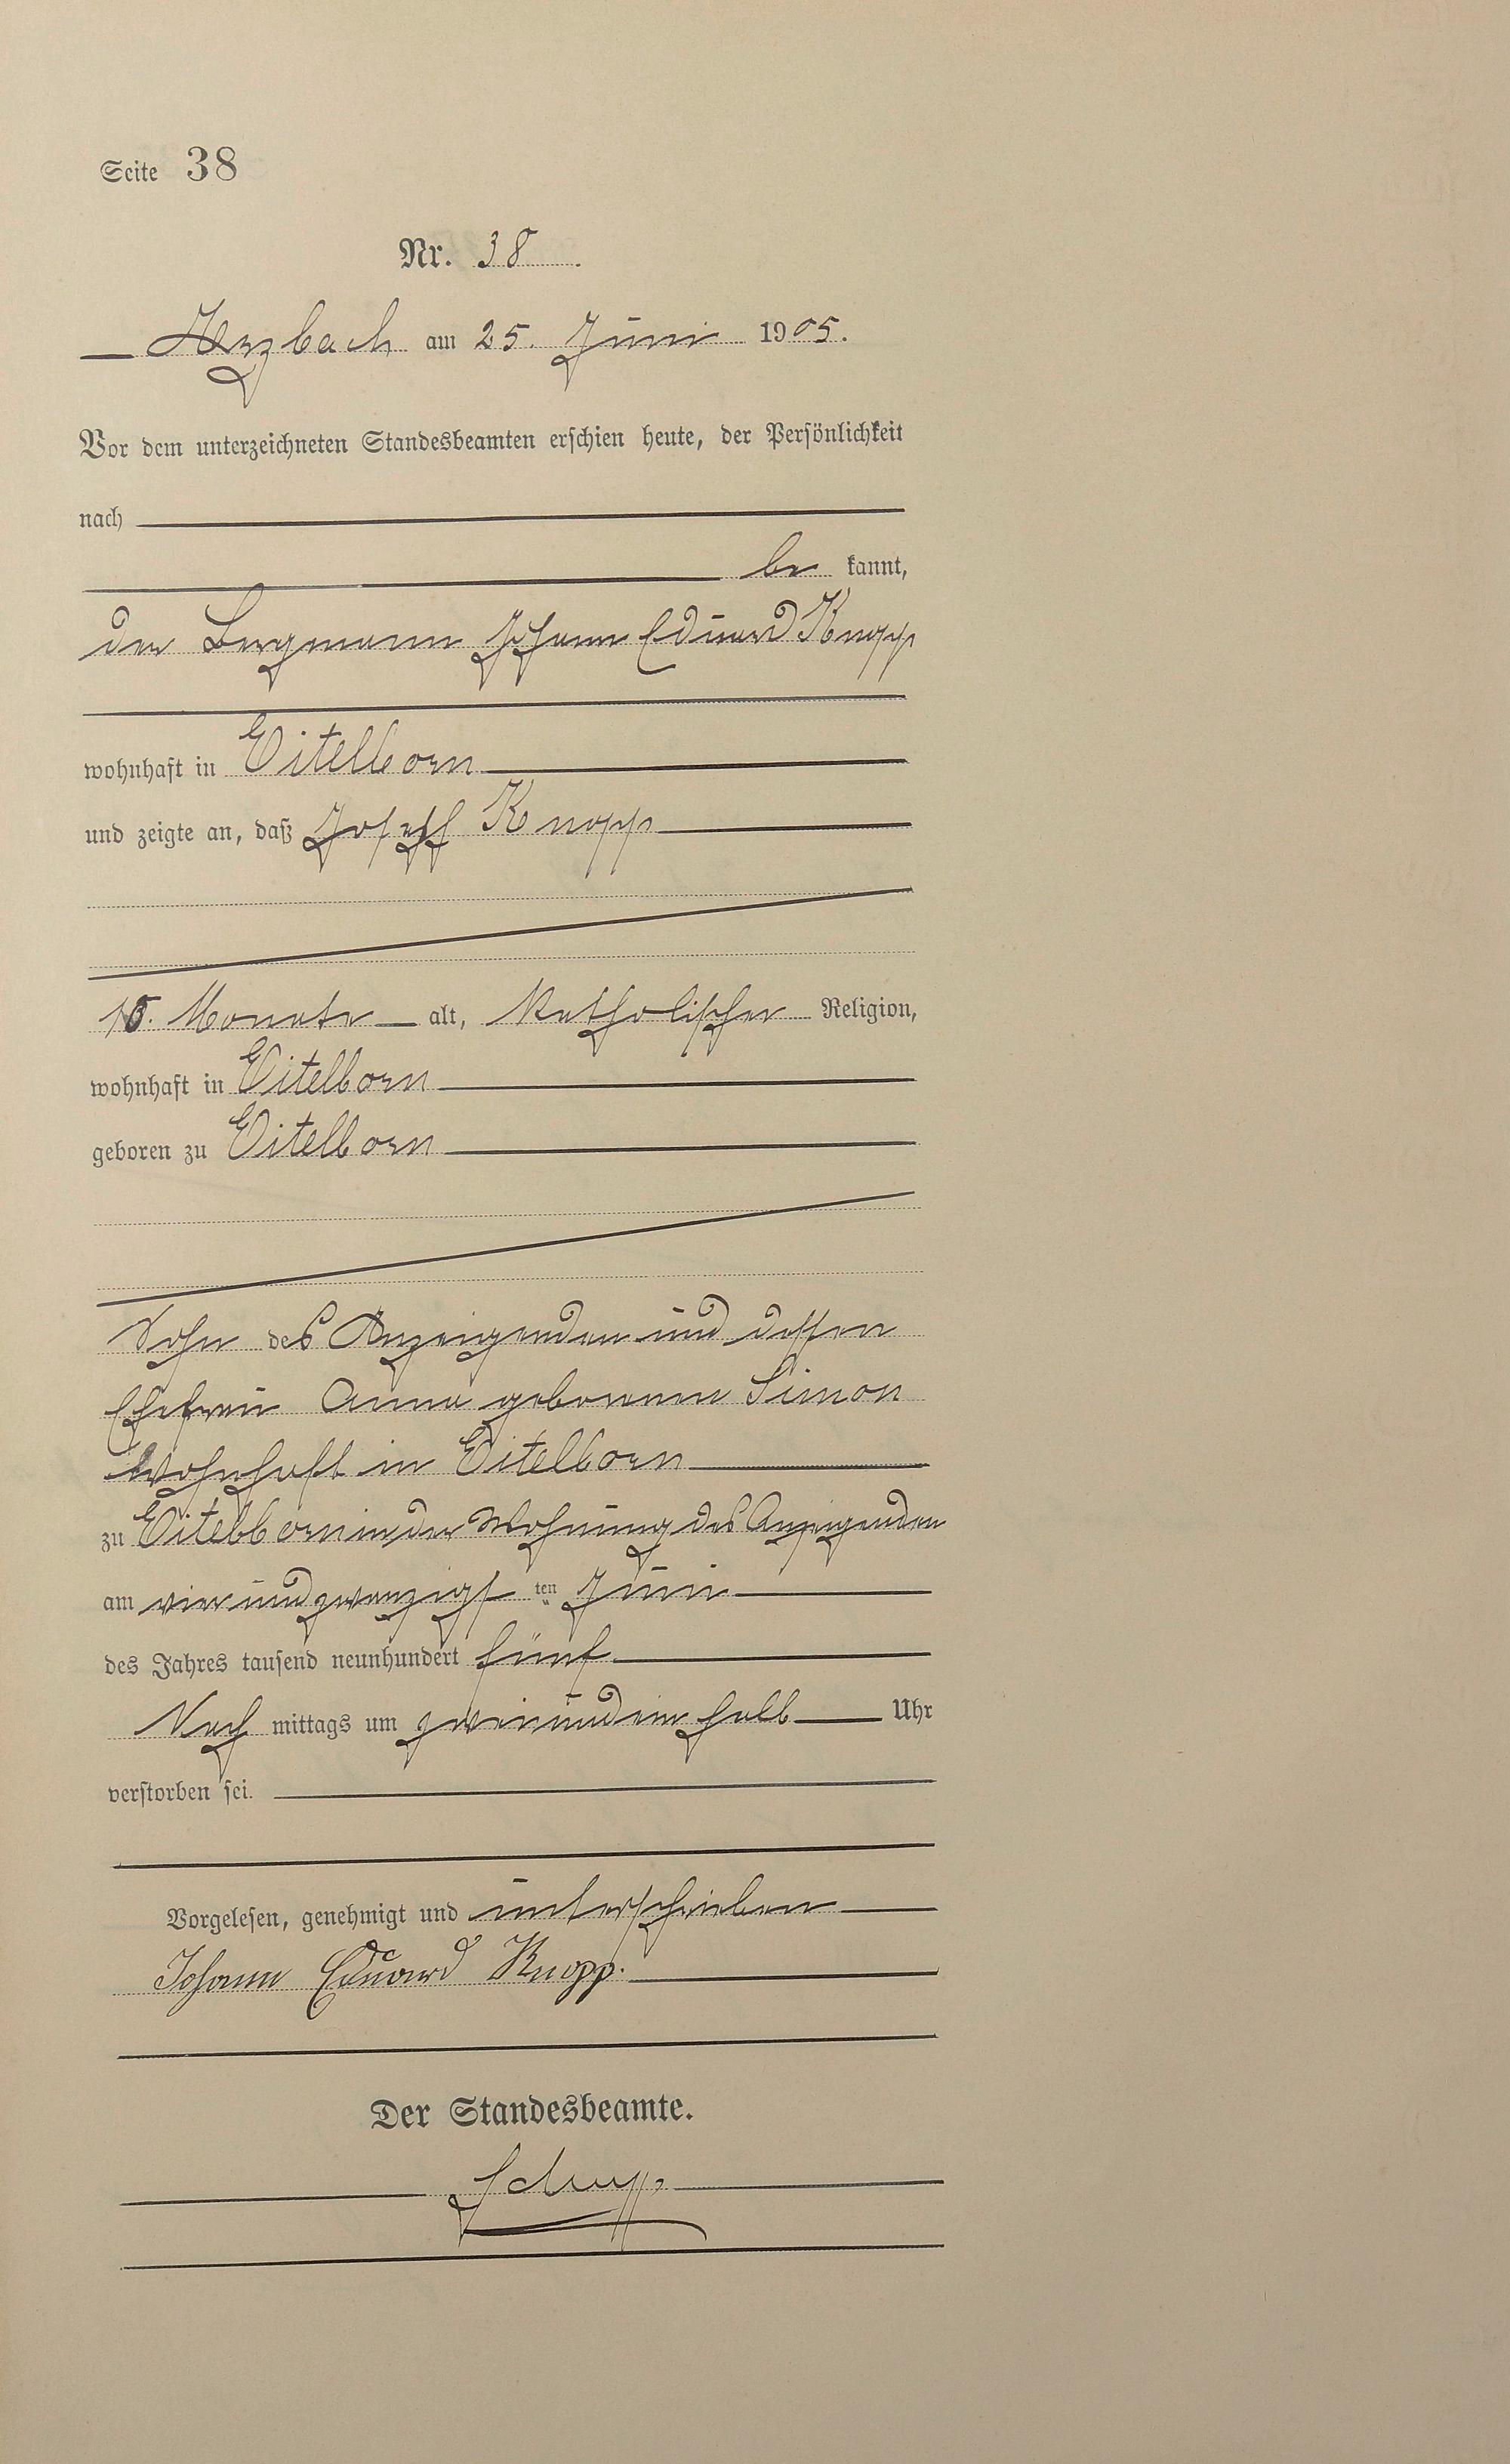 Seite 38
Nr. 38.
Arzbach am 25. Juni 1905.
Vor dem unterzeichneten Standesbeamten erschien heute, der Persönlichkeit
nach
be kannt,
der Bergmann Johann Eduard Knopp
wohnhaft in Eitelborn
und zeigte an, daß Joseph Knopp
Monate alt, katholischer Religion,
wohnhaft in Eitelborn
geboren zu Eitelborn
Sohn des Anzeigenden und dessen
Ehefrau Anna geborenen Simon
wohnhaft in Eitelborn
zu Eitelborn in der Wohnung des Anzeigenden
am vierundzwanzigsten Juni
des Jahres tausend neunhundert fünf
Nach mittags um zweiundeinhalb Uhr
verstorben sei.
Vorgelesen, genehmigt und unterschrieben
Johann Eduard Knopp.
Der Standesbeamte.